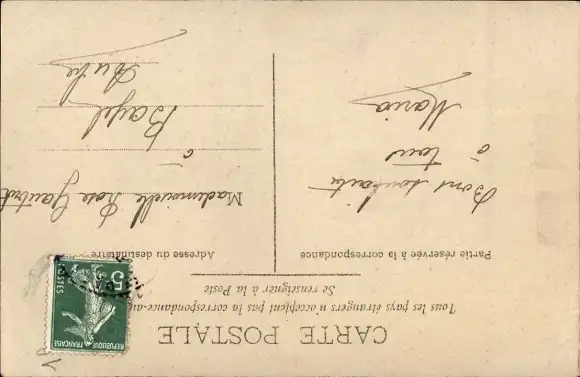 CARTE POSTALE
Tous les pays étrangers n'acceptent pas la correspondance au
Se renseigner à la Poste
Partie réservée à la correspondance
Adresse du destinataire
Bons souhaits
à tous
Maria
Mademoiselle Rose Gautrot
à
Bayel
Aube
REPUBLIQUE FRANÇAISE
5
POSTES